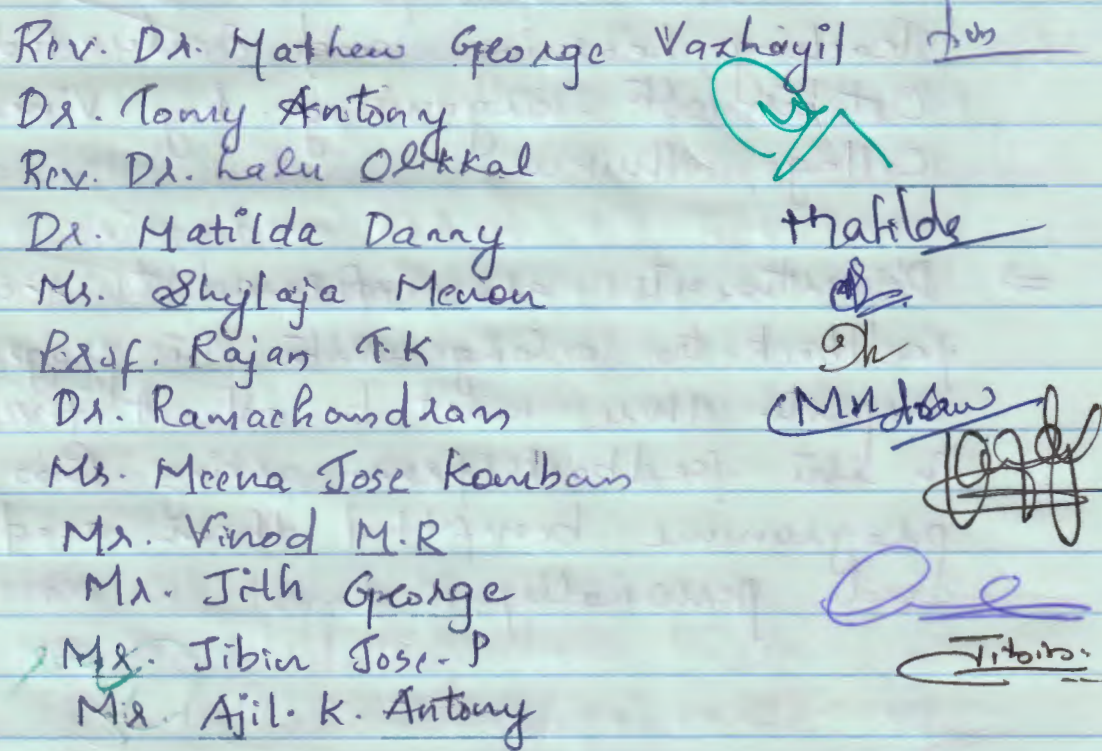 Rev. Dr. Mathew George Vazhayil
Dr. Tomy Antony
Rev. Dr. Lalu Olikkal
Dr. Matilda Danny Matilda
Ms. Shylaja Menon
Prof. Rajan T.K
Dr. Ramachandran
Ms. Meena Jose Komban
Mr. Vinod M.R
Mr. Jith George
Mr. Jibin Jose. P Jibin.
Mr. Ajil. K. Antony